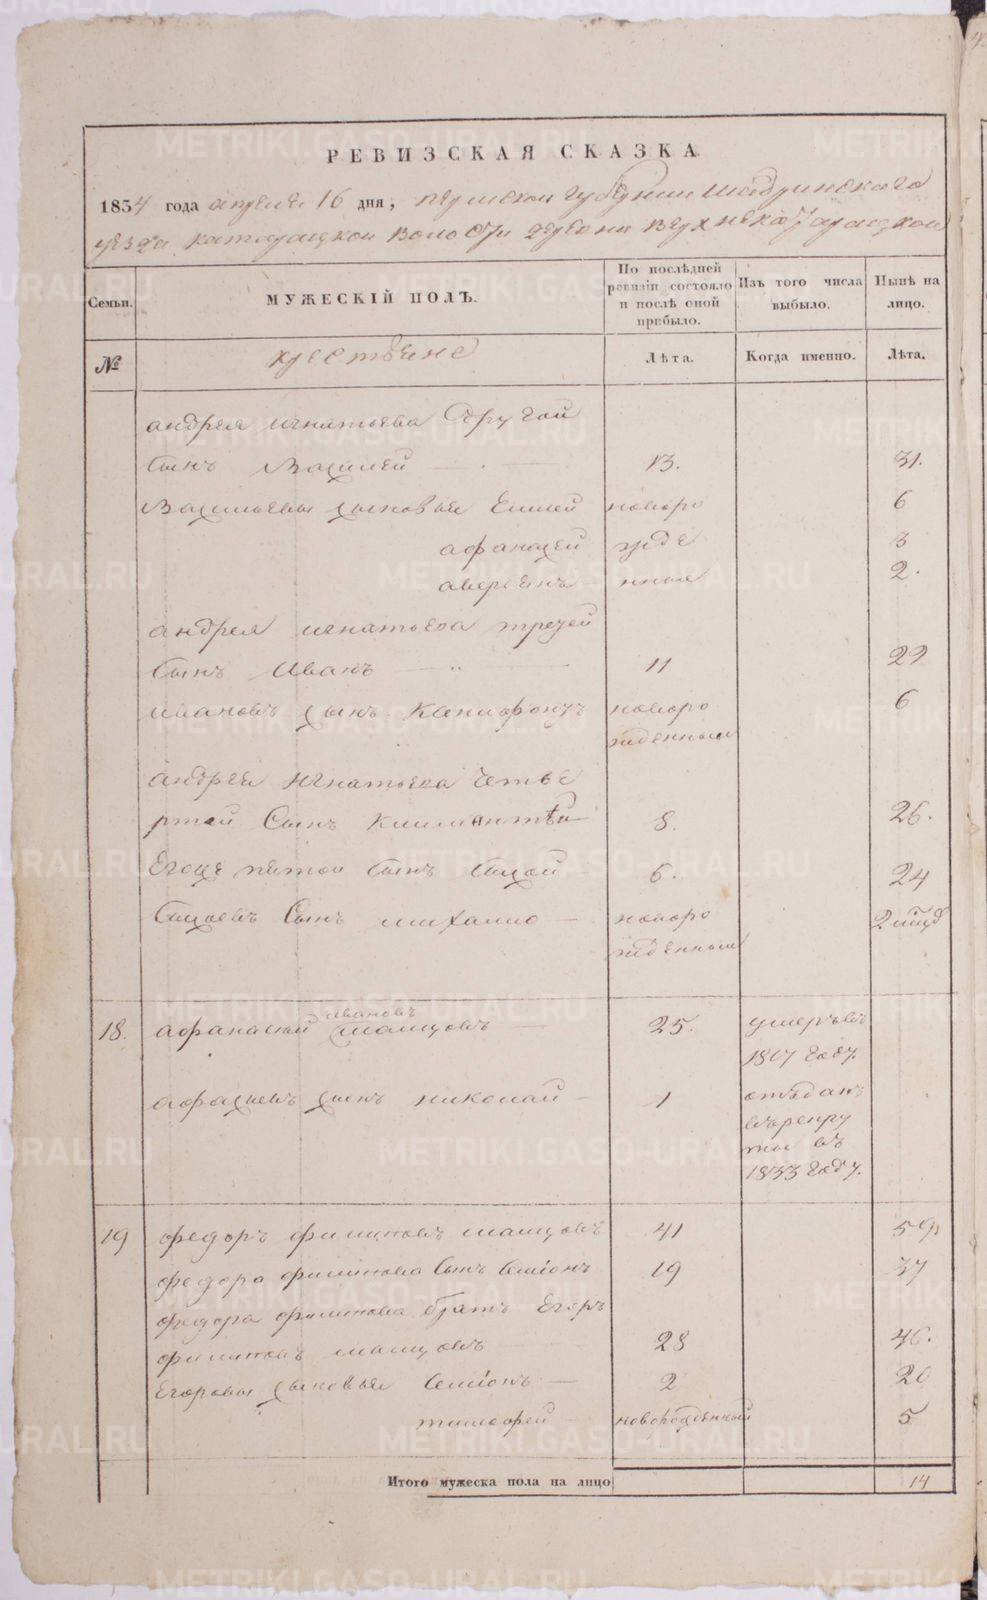 РЕВИЗСКАЯ СКАЗКА
1854 года апреля 16 дня, пермской губернии Шадринского
уезда катайской волости деревни верхне
Семьи. МУЖЕСКІЙ ПОЛЪ. По послѣдней ревизіи состояло и послѣ оной прибыло. Изъ того числа выбыло. Нынѣ на лицо.
№ крестьяне Лѣта. Когда именно. Лѣта.
андрея игнатьева другой
сынъ Василей 13. 31.
Васильевы сыновья Елисей новоро 6
афанасей жде 3
аверьянъ нные 2.
андрея игнатьева третей
сынъ Иванъ 11 29
ивановъ сынъ новоро 6
жденный
андрея игнатьева четве
ртой Сынъ 8. 26.
Егоже пятой сынъ 6. 24
Сынъ михайло новоро 2
жденный
18. афанасий ивановъ 25. умеръ въ
1817 году.
сынъ николай 1 отъдан
въ рекру
ты въ
1833 году.
19 федоръ филиповъ 41 59
федора филипова сынъ семіонъ 19 37
федора филипова братъ Егоръ
филиповъ 28 46.
Егоровы сыновья семіонъ 2 20
тимофей новорожденный 5
Итого мужеска пола на лицо 14
METRIKI.GASO-URAL.RU